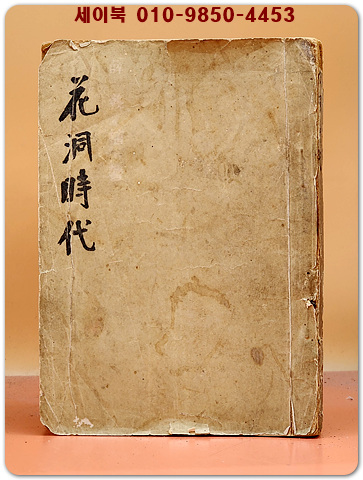 세이북 010-9850-4453
花洞時代